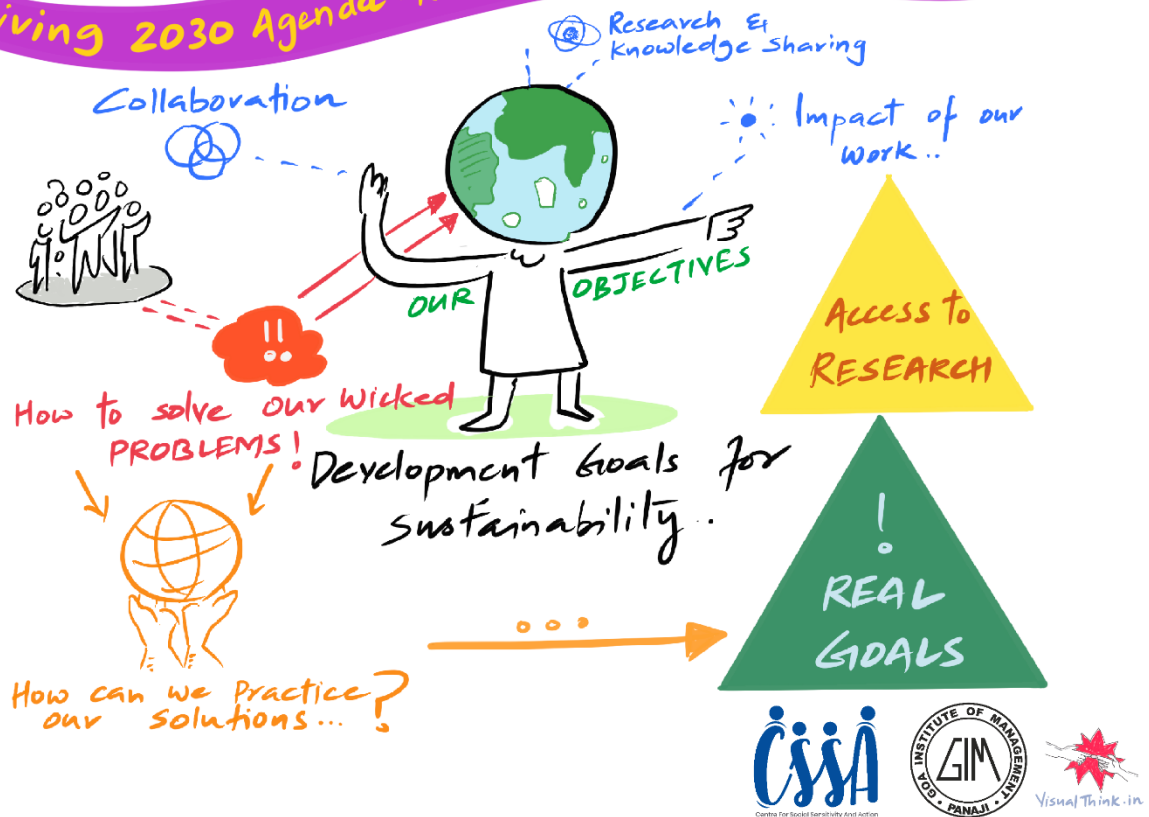 iving 2030 Agenda
Research &
Knowledge sharing
Collaboration
Impact of our
work..
OUR OBJECTIVES
Access to
RESEARCH
!!
How to solve our wicked
PROBLEMS!
Development Goals for
sustainability..
!
REAL
GOALS
How can we Practice
our solutions...?
CSSA
Centre For Social Sensitivity And Action
GOA INSTITUTE OF MANAGEMENT
GIM
PANAJI
VisualThink.in